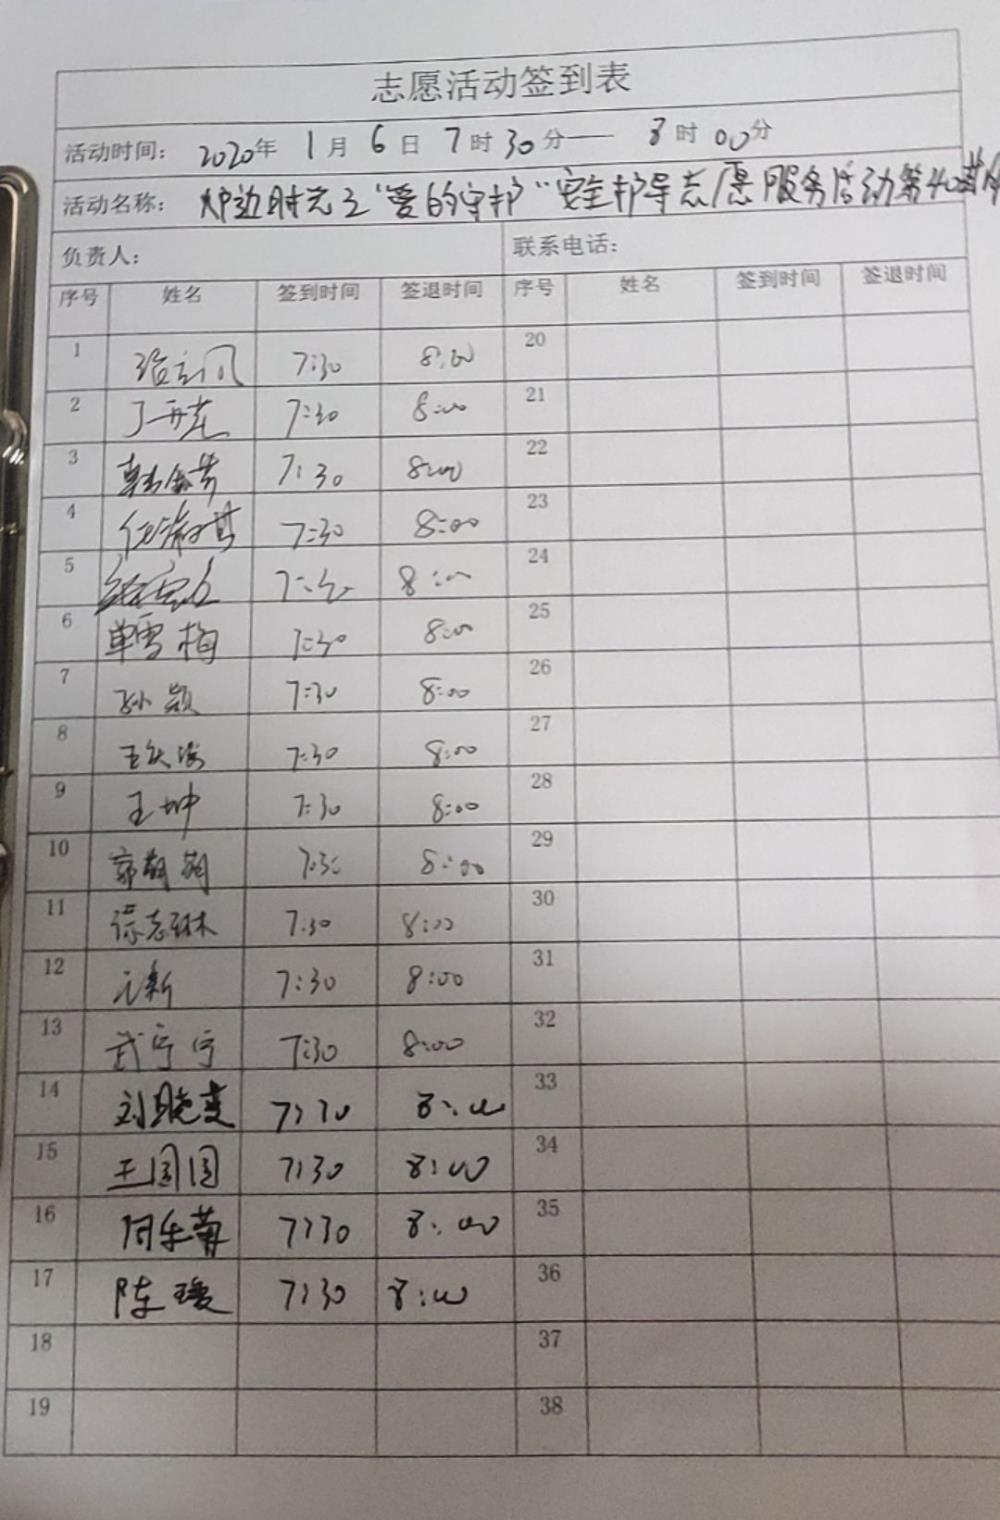 志愿活动签到表
活动时间： 2020年 1月 6日 7时30分—— 8时00分
活动名称： 炉边时光之“爱的守护”安全护导志愿服务活动第40
负责人： 联系电话：
序号 姓名 签到时间 签退时间 序号 姓名 签到时间 签退时间
1 7:30 8:00 20
2 7:30 8:00 21
3 7:30 8:00 22
4 7:30 8:00 23
5 8:00 24
6 单雪梅 7:30 8:00 25
7 孙颖 7:30 8:00 26
8 7:30 8:00 27
9 王坤 7:30 8:00 28
10 郭朝朝 7:30 8:00 29
11 7:30 8:00 30
12 元新 7:30 8:00 31
13 武宁宁 7:30 8:00 32
14 刘晓燕 7:30 8:00 33
15 王园园 7:30 8:00 34
16 7:30 8:00 35
17 陈瑗 7:30 8:00 36
18 37
19 38